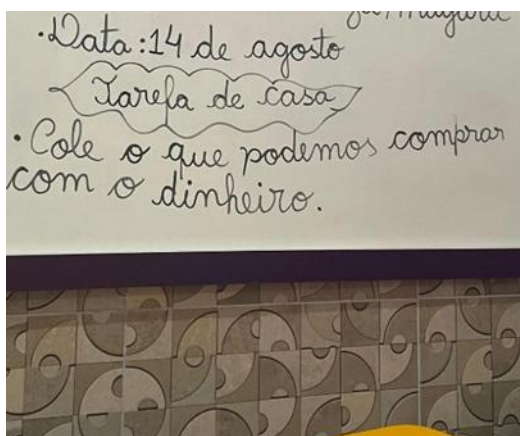 ·Data:14 de agosto
Tarefa de casa
·Cole o que podemos comprar
com o dinheiro.